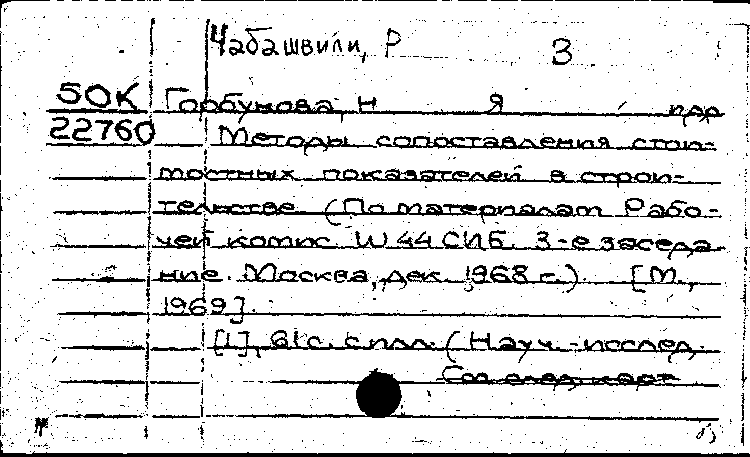 Чабашвили, Р 3
50К Горбунова, Н Я пдр
22760 Методы сопоставления стои-
мостных показателей в строи-
тельстве (По материалам Рабо-
чей комис. W 44 СИБ. 3-е заседа-
ние. Москва, дек. 1968 г.) [М.,
1969].
[1], 61 с. с илл. (Науч.-исслед.
См. след. карт